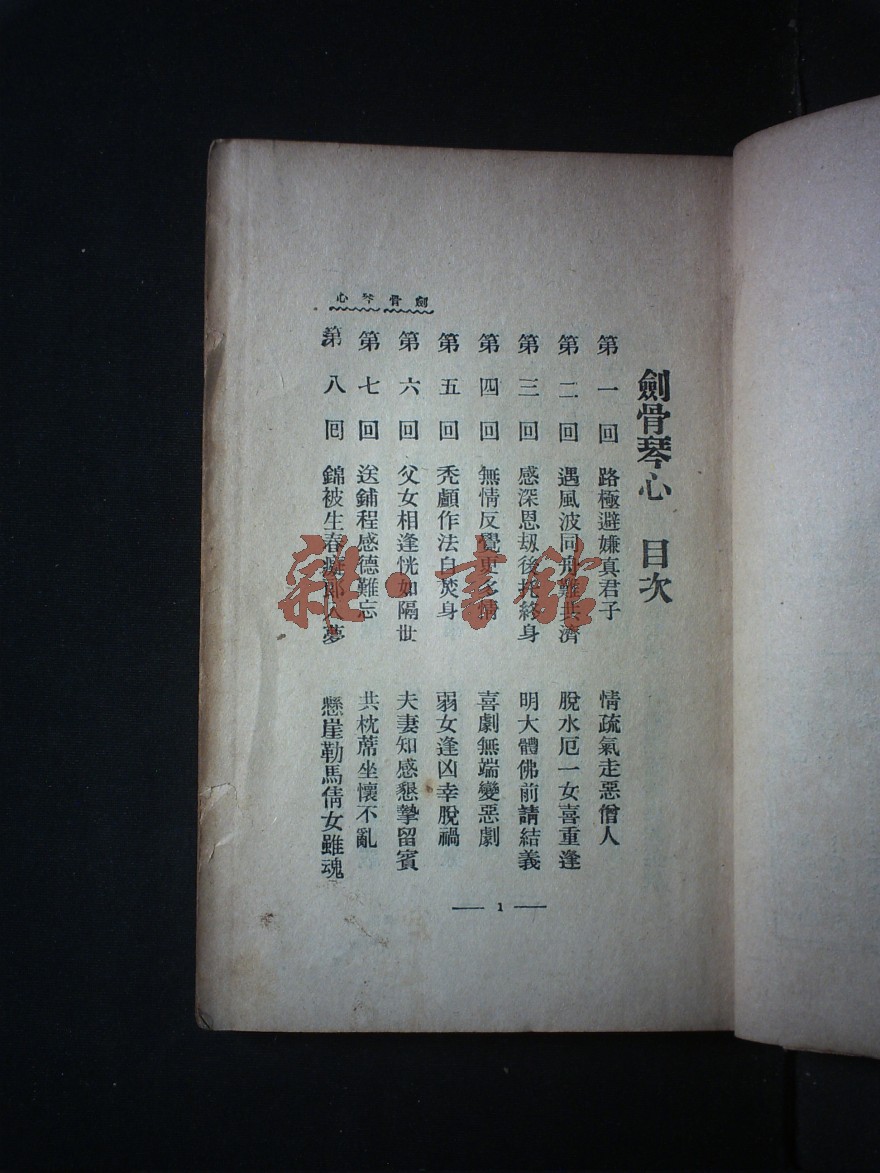 劍骨琴心　目次
第一回　路極避嫌真君子　情疏氣走惡僧人
第二回　遇風波同舟難共濟　脫水厄一女喜重逢
第三回　感深恩劫後托終身　明大體佛前請結義
第四回　無情反覺更多情　喜劇無端變惡劇
第五回　禿顱作法自焚身　弱女逢凶幸脫禍
第六回　父女相逢恍如隔世　夫妻知感懇摯留賓
第七回　送鋪程感德難忘　共枕蓆坐懷不亂
第八回　錦被生春癡郎入夢　懸崖勒馬倩女雖魂
劍骨琴心
1
雜·書館